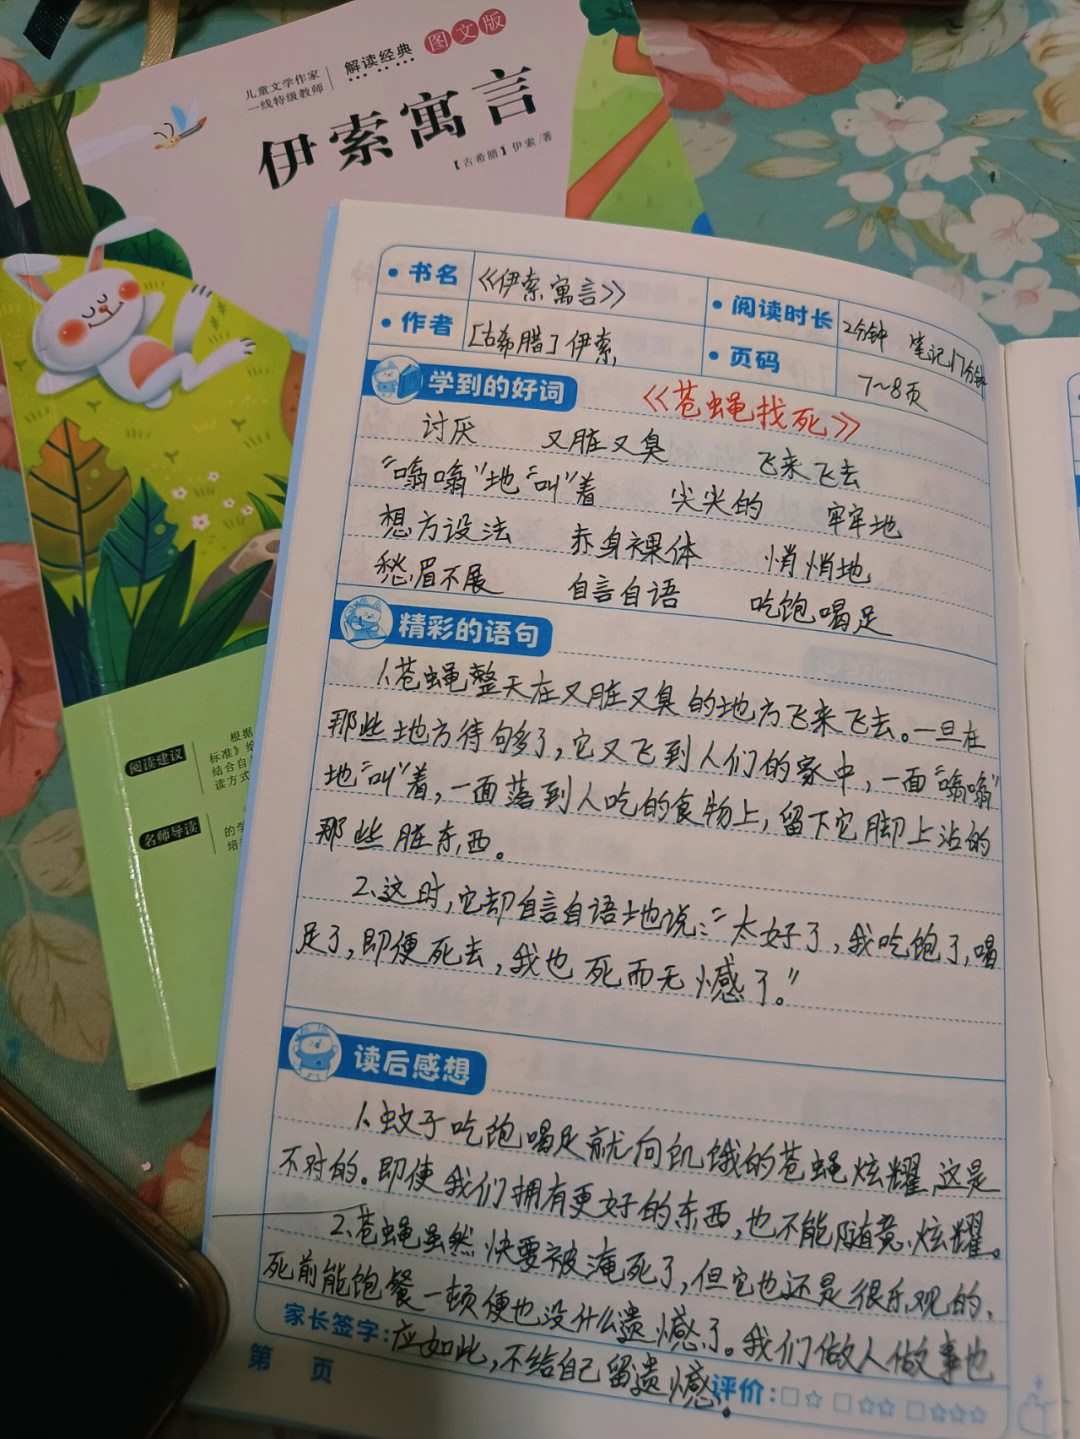 儿童文学作家
一线特级教师
解读经典
图文版
伊索寓言
【古希腊】伊索/著
阅读建议
根据
标准》
结合自
读方式
名师导读
的学
培
书名
《伊索寓言》
阅读时长
2分钟 笔记17分钟
作者
[古希腊]伊索
页码
7~8页
学到的好词
《苍蝇找死》
讨厌 又脏又臭 飞来飞去
“嗡嗡”地“叫”着 尖尖的 牢牢地
想方设法 赤身裸体 悄悄地
愁眉不展 自言自语 吃饱喝足
精彩的语句
1、苍蝇整天在又脏又臭的地方飞来飞去。一旦在
那些地方待够多了,它又飞到人们的家中,一面“嗡嗡”
地“叫”着,一面落到人吃的食物上,留下它脚上沾的
那些脏东西。
2、这时,它却自言自语地说:“太好了,我吃饱了,喝
足了,即便死去,我也死而无憾了。”
读后感想
1、蚊子吃饱喝足就向饥饿的苍蝇炫耀,这是
不对的。即使我们拥有更好的东西,也不能随意炫耀。
2、苍蝇虽然快要被淹死了,但它也还是很乐观的、
死前能饱餐一顿便也没什么遗憾了。我们做人做事也
家长签字:应如此,不给自己留遗憾。
评价:□☆ □☆☆ □☆☆☆
第 页